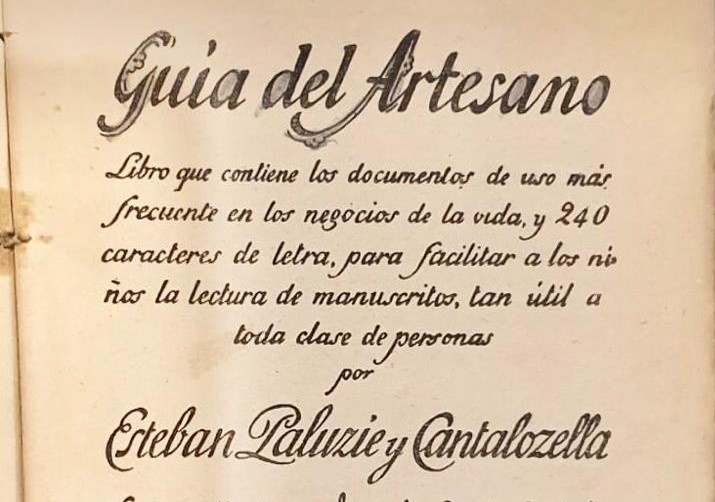 Guia del Artesano
Libro que contiene los documentos de uso más
frecuente en los negocios de la vida, y 240
caracteres de letra, para facilitar a los ni-
ños la lectura de manuscritos, tan útil a
toda clase de personas
por
Esteban Paluzie y Cantalozella